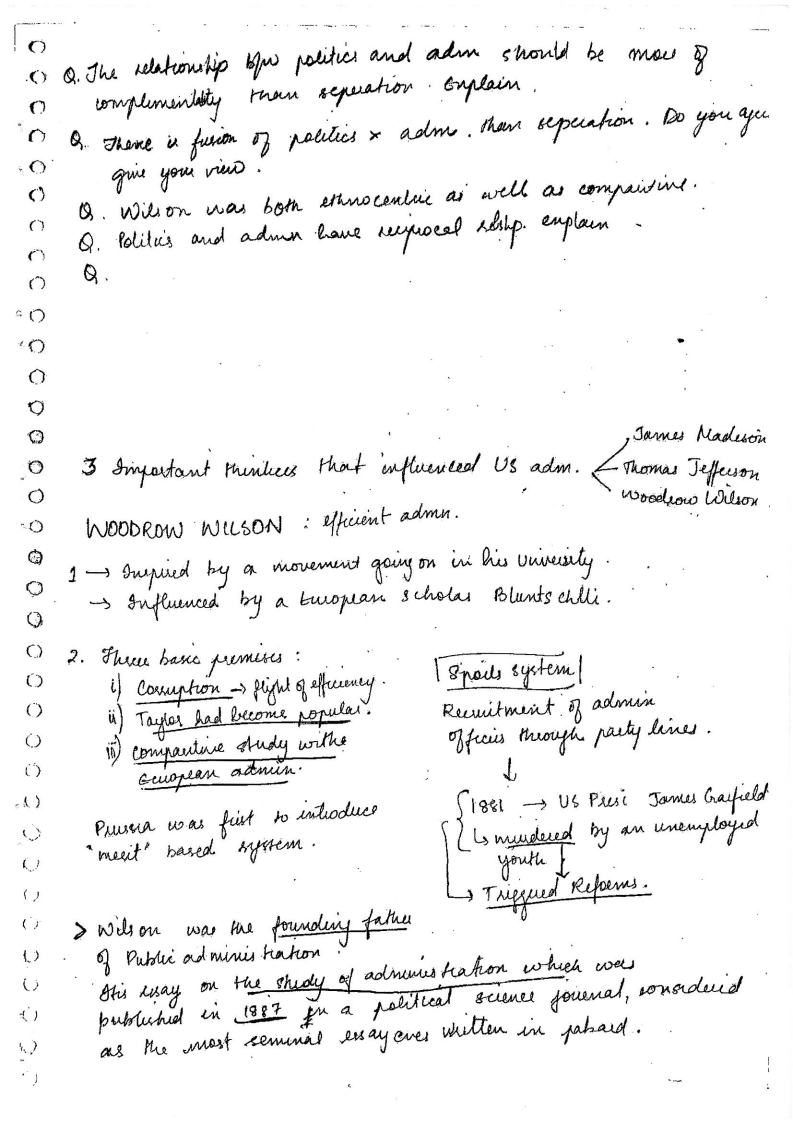 Q. The relationship b/w politics and adm should be more of
complementality than seperation. Explain.
Q. There is fusion of politics x adm. than seperation. Do you agree
give your view.
Q. Wilson was both ethnocentric as well as comparitive.
Q. Politics and admn have reciprocal relshp. explain
Q.
3 Important thinkers that influenced US adm.
James Madison
Thomas Jefferson
Woodrow Wilson
WOODROW WILSON : efficient admn.
1 → Inspired by a movement going on in his University.
→ Influenced by a European scholar Bluntschlli.
2. Three basic premises :
i) Corruption → flight of efficiency.
ii) Taylor had become popular.
iii) comparitive study with
European admin.
Prussia was first to introduce
"merit" based system.
Spoils system
Recruitment of admin
officers through party lines.
↓
1881 → US Presi James Garfield
↳ murdered by an unemployed
youth
→ Triggered Reforms.
> Wilson was the founding father
of Public administration
His essay on the study of administration which was
published in 1887 in a political science journal, considered
as the most seminal essay ever written in pabad.